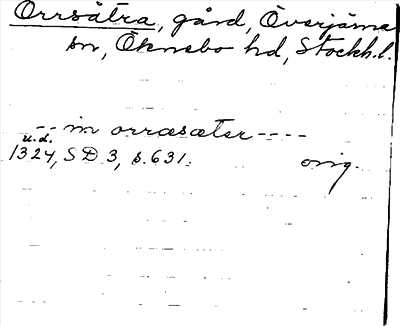 Orrsätra, gård, Överjärna
sn, Öknebo hd, Stockh.l.
-- in orræsæter ----
u.d.
1324, SD 3, s. 631.   orig.